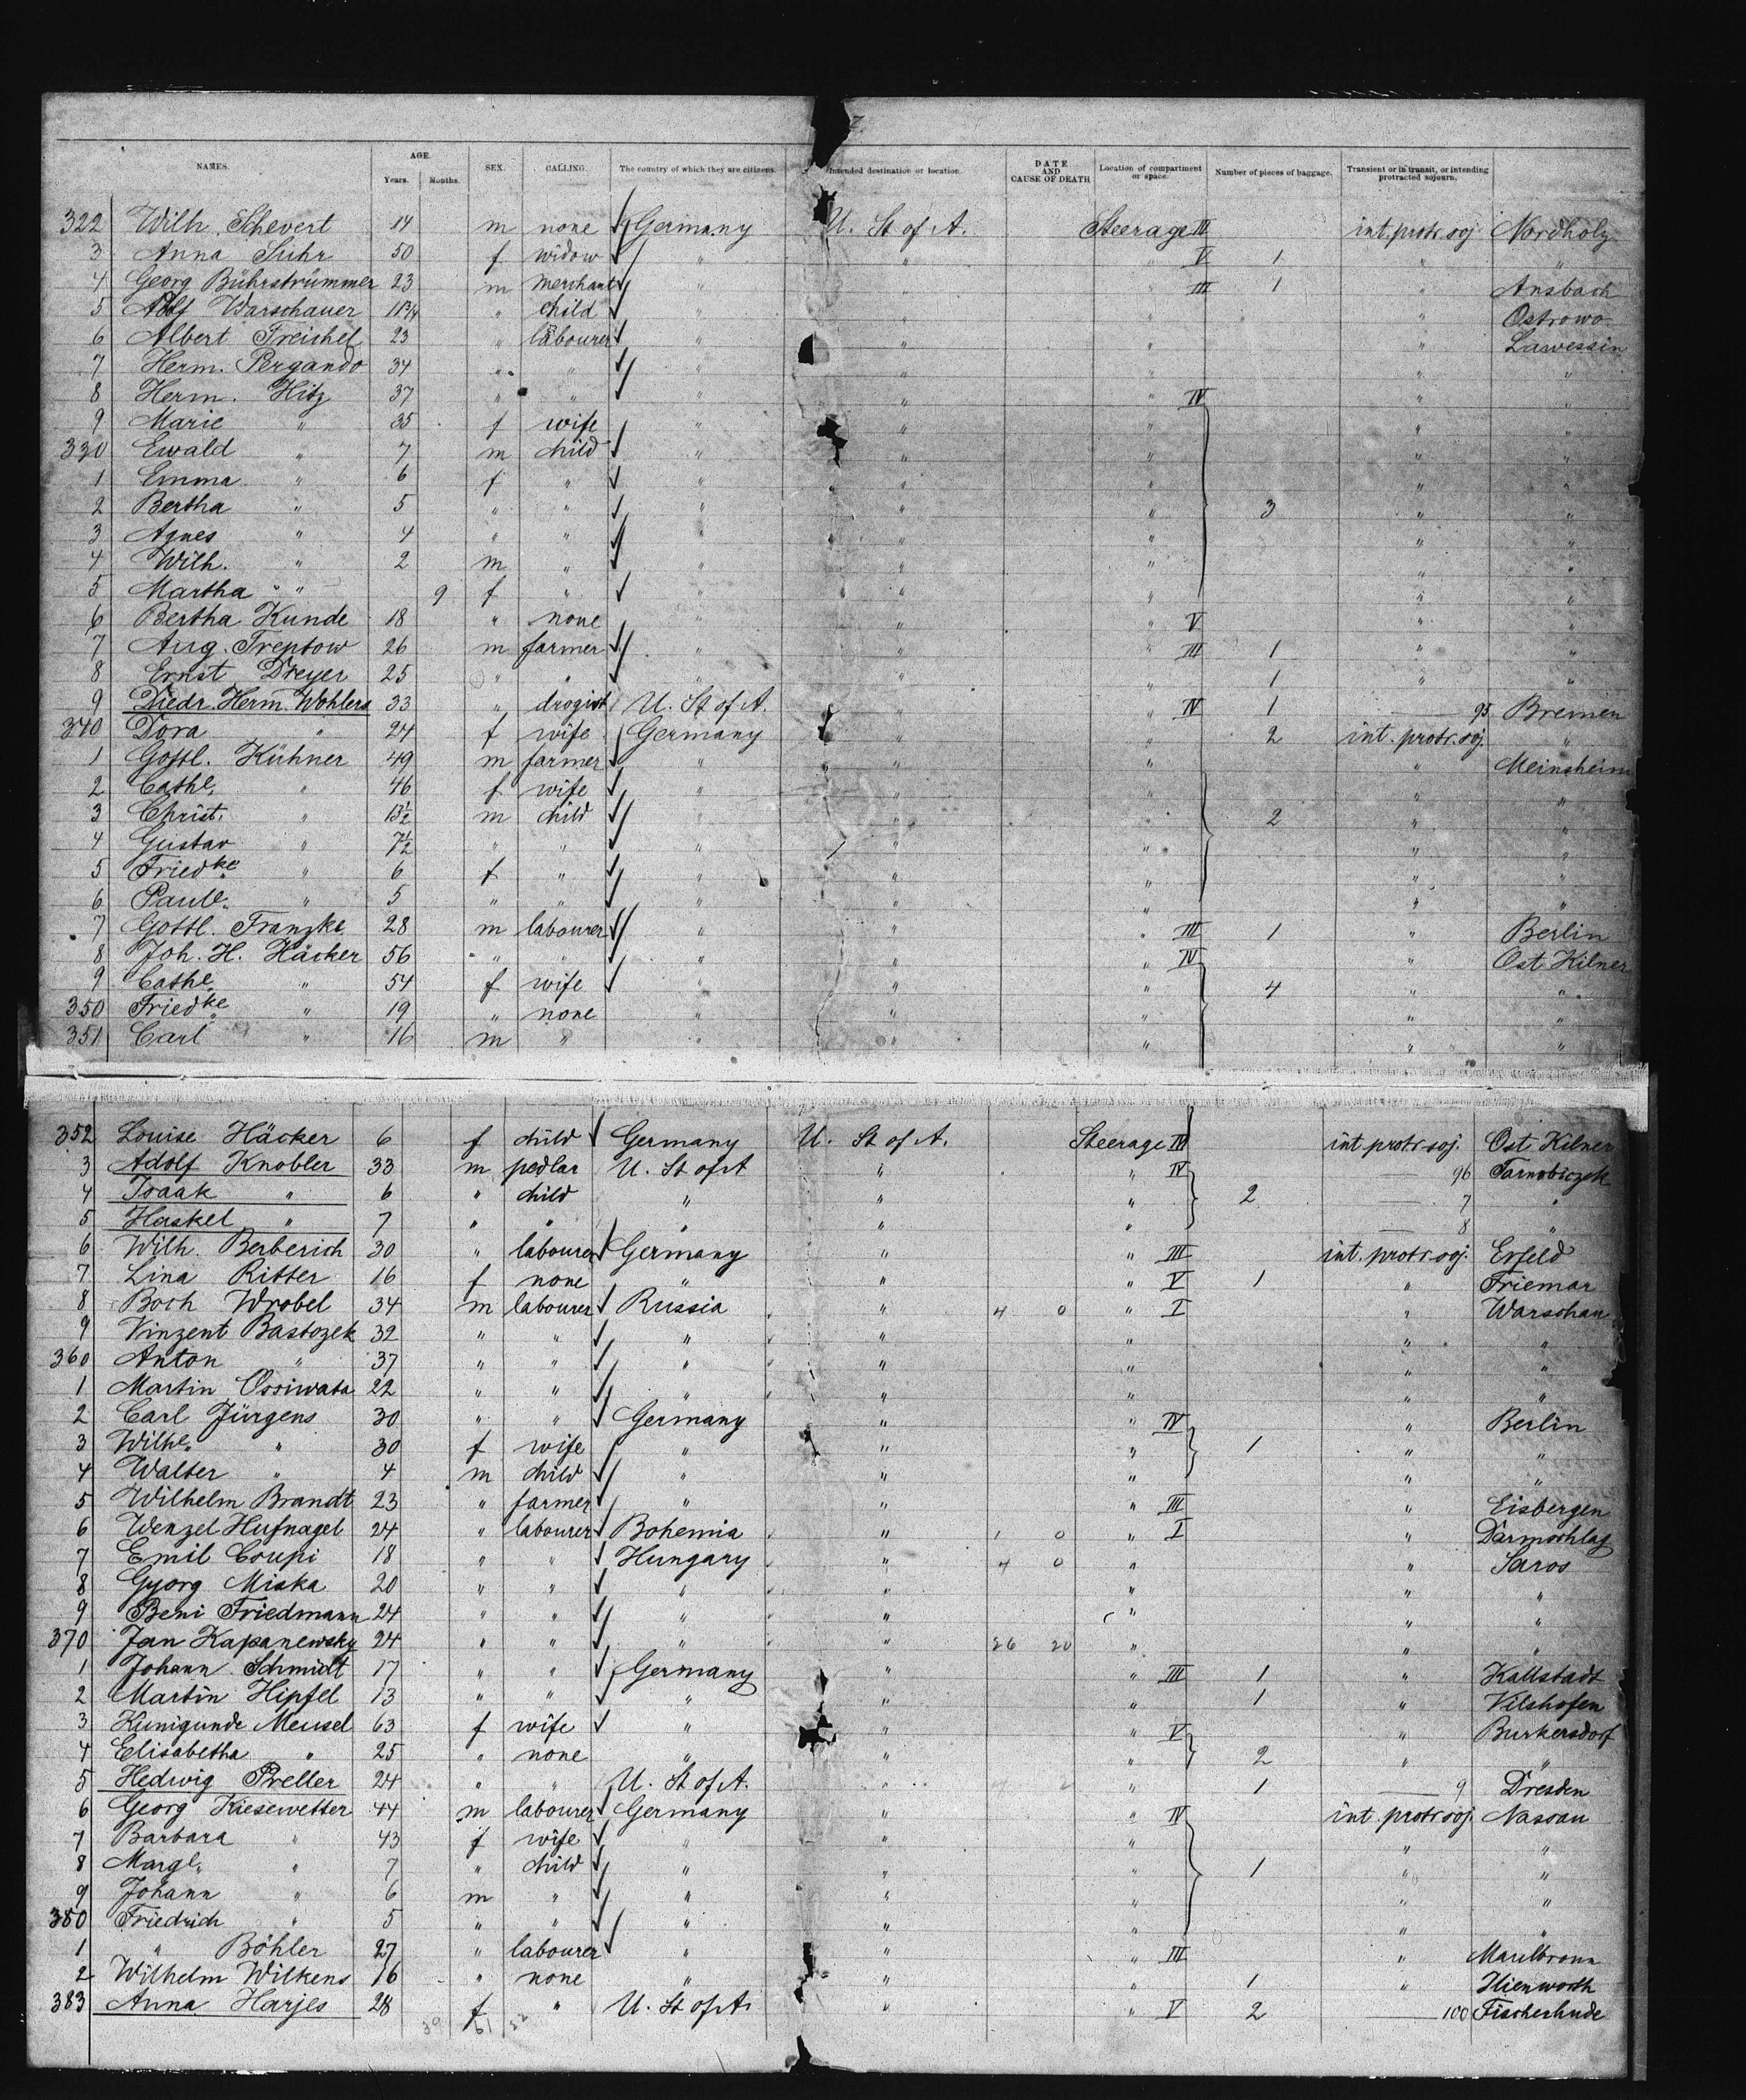 7.
NAMES. AGE. Years. Months. SEX. CALLING. The country of which they are citizens. Intended destination or location. DATE AND CAUSE OF DEATH Location of compartment or space. Number of pieces of baggage. Transient or in transit, or intending protracted sojourn.
322 Wilh. Schevert 14 m none Germany U. St of A. Steerage III int. protr. soj. Nordholz
3 Anna Suhr 50 f widow " " " V 1 " "
4 Georg Bührstrümmer 23 m merchant " " " III 1 " Ansbach
5 Adolf Warschauer 11 3/4 " child " " " " Ostrowo
6 Albert Freichel 23 " labourer " " " " Lawessin
7 Herm. Pergando 34 " " " " " " "
8 Herm. Hitz 37 " " " " " IV " "
9 Marie " 35 f wife " " " " "
330 Ewald " 7 m child " " " " "
1 Emma " 6 f " " " " " "
2 Bertha " 5 " " " " " 3 " "
3 Agnes " 4 " " " " " " "
4 Wilh. " 2 m " " " " " "
5 Martha " 9 f " " " " " "
6 Bertha Kunde 18 " none " " " V " "
7 Aug. Treptow 26 m farmer " " " III 1 " "
8 Ernst Dreyer 25 " " " " " 1 " "
9 Diedr. Herm. Wohlers 33 " drogist U. St of A. " " IV 1 95 Bremen
340 Dora " 24 f wife Germany " " 2 int. protr. soj. "
1 Gottl. Kühner 49 m farmer " " " " Meinsheim
2 Cathe. " 46 f wife " " " " "
3 Christ. " 13 1/2 m child " " " 2 " "
4 Gustav " 7 1/2 " " " " " " "
5 Friedke " 6 f " " " " " "
6 Paule. " 5 " " " " " " "
7 Gottl. Franzke 28 m labourer " " " III 1 " Berlin
8 Joh. H. Häcker 56 " " " " " IV " Ost Kilner
9 Cathe. " 54 f wife " " " 4 " "
350 Friedke " 19 " none " " " " "
351 Carl " 16 m " " " " " "
352 Louise Häcker 6 f child Germany U. St of A. Steerage IV int protr. soj. Ost Kilner
3 Adolf Knobler 33 m pedlar U. St of A " " IV 96 Tarnobiczek
4 Isaak " 6 " child " " " 2 7 "
5 Haskel " 7 " " " " " 8 "
6 Wilh. Berberich 30 " labourer Germany " " III int. protr. soj. Erfeld
7 Lina Ritter 16 f none " " " V 1 " Friemar
8 Boch Wrobel 34 m labourer Russia " 4 0 " I " Warschau
9 Vinzent Bastozek 32 " " " " " " "
360 Anton " 37 " " " " " " "
1 Martin Ossiwata 22 " " " " " " "
2 Carl Jürgens 30 " " Germany " " IV " Berlin
3 Wilhe. " 30 f wife " " " 1 " "
4 Walter " 4 m child " " " " "
5 Wilhelm Brandt 23 " farmer " " " III " Eisbergen
6 Wenzel Hufnagel 24 " labourer Bohemia " 1 0 " I " Darmschlag
7 Emil Coupi 18 " " Hungary " 4 0 " " Saros
8 Gyorg Miska 20 " " " " " " "
9 Beni Friedmann 24 " " " " " " "
370 Jan Kapanewsky 24 " " " " 26 20 " " "
1 Johann Schmidt 17 " " Germany " " III 1 " Kallstadt
2 Martin Hipfel 13 " " " " " 1 " Vilshofen
3 Kunigunde Meusel 63 f wife " " " V " Burkersdorf
4 Elisabetha " 25 " none " " " 2 " "
5 Hedwig Preller 24 " " U. St of A. " " 1 9 Dresden
6 Georg Kiesewetter 44 m labourer Germany " " IV int. protr. soj. Nassau
7 Barbara " 43 f wife " " " " "
8 Marge. " 7 " child " " " 1 " "
9 Johann " 6 m " " " " " "
380 Friedrich " 5 " " " " " " "
1 " Böhler 27 " labourer " " " III " Maulbronn
2 Wilhelm Wilkens 16 " none " " " 1 " Ihlenworth
383 Anna Harjes 28 f " U. St of A. " " V 2 100 Fischerhude
39 61 22